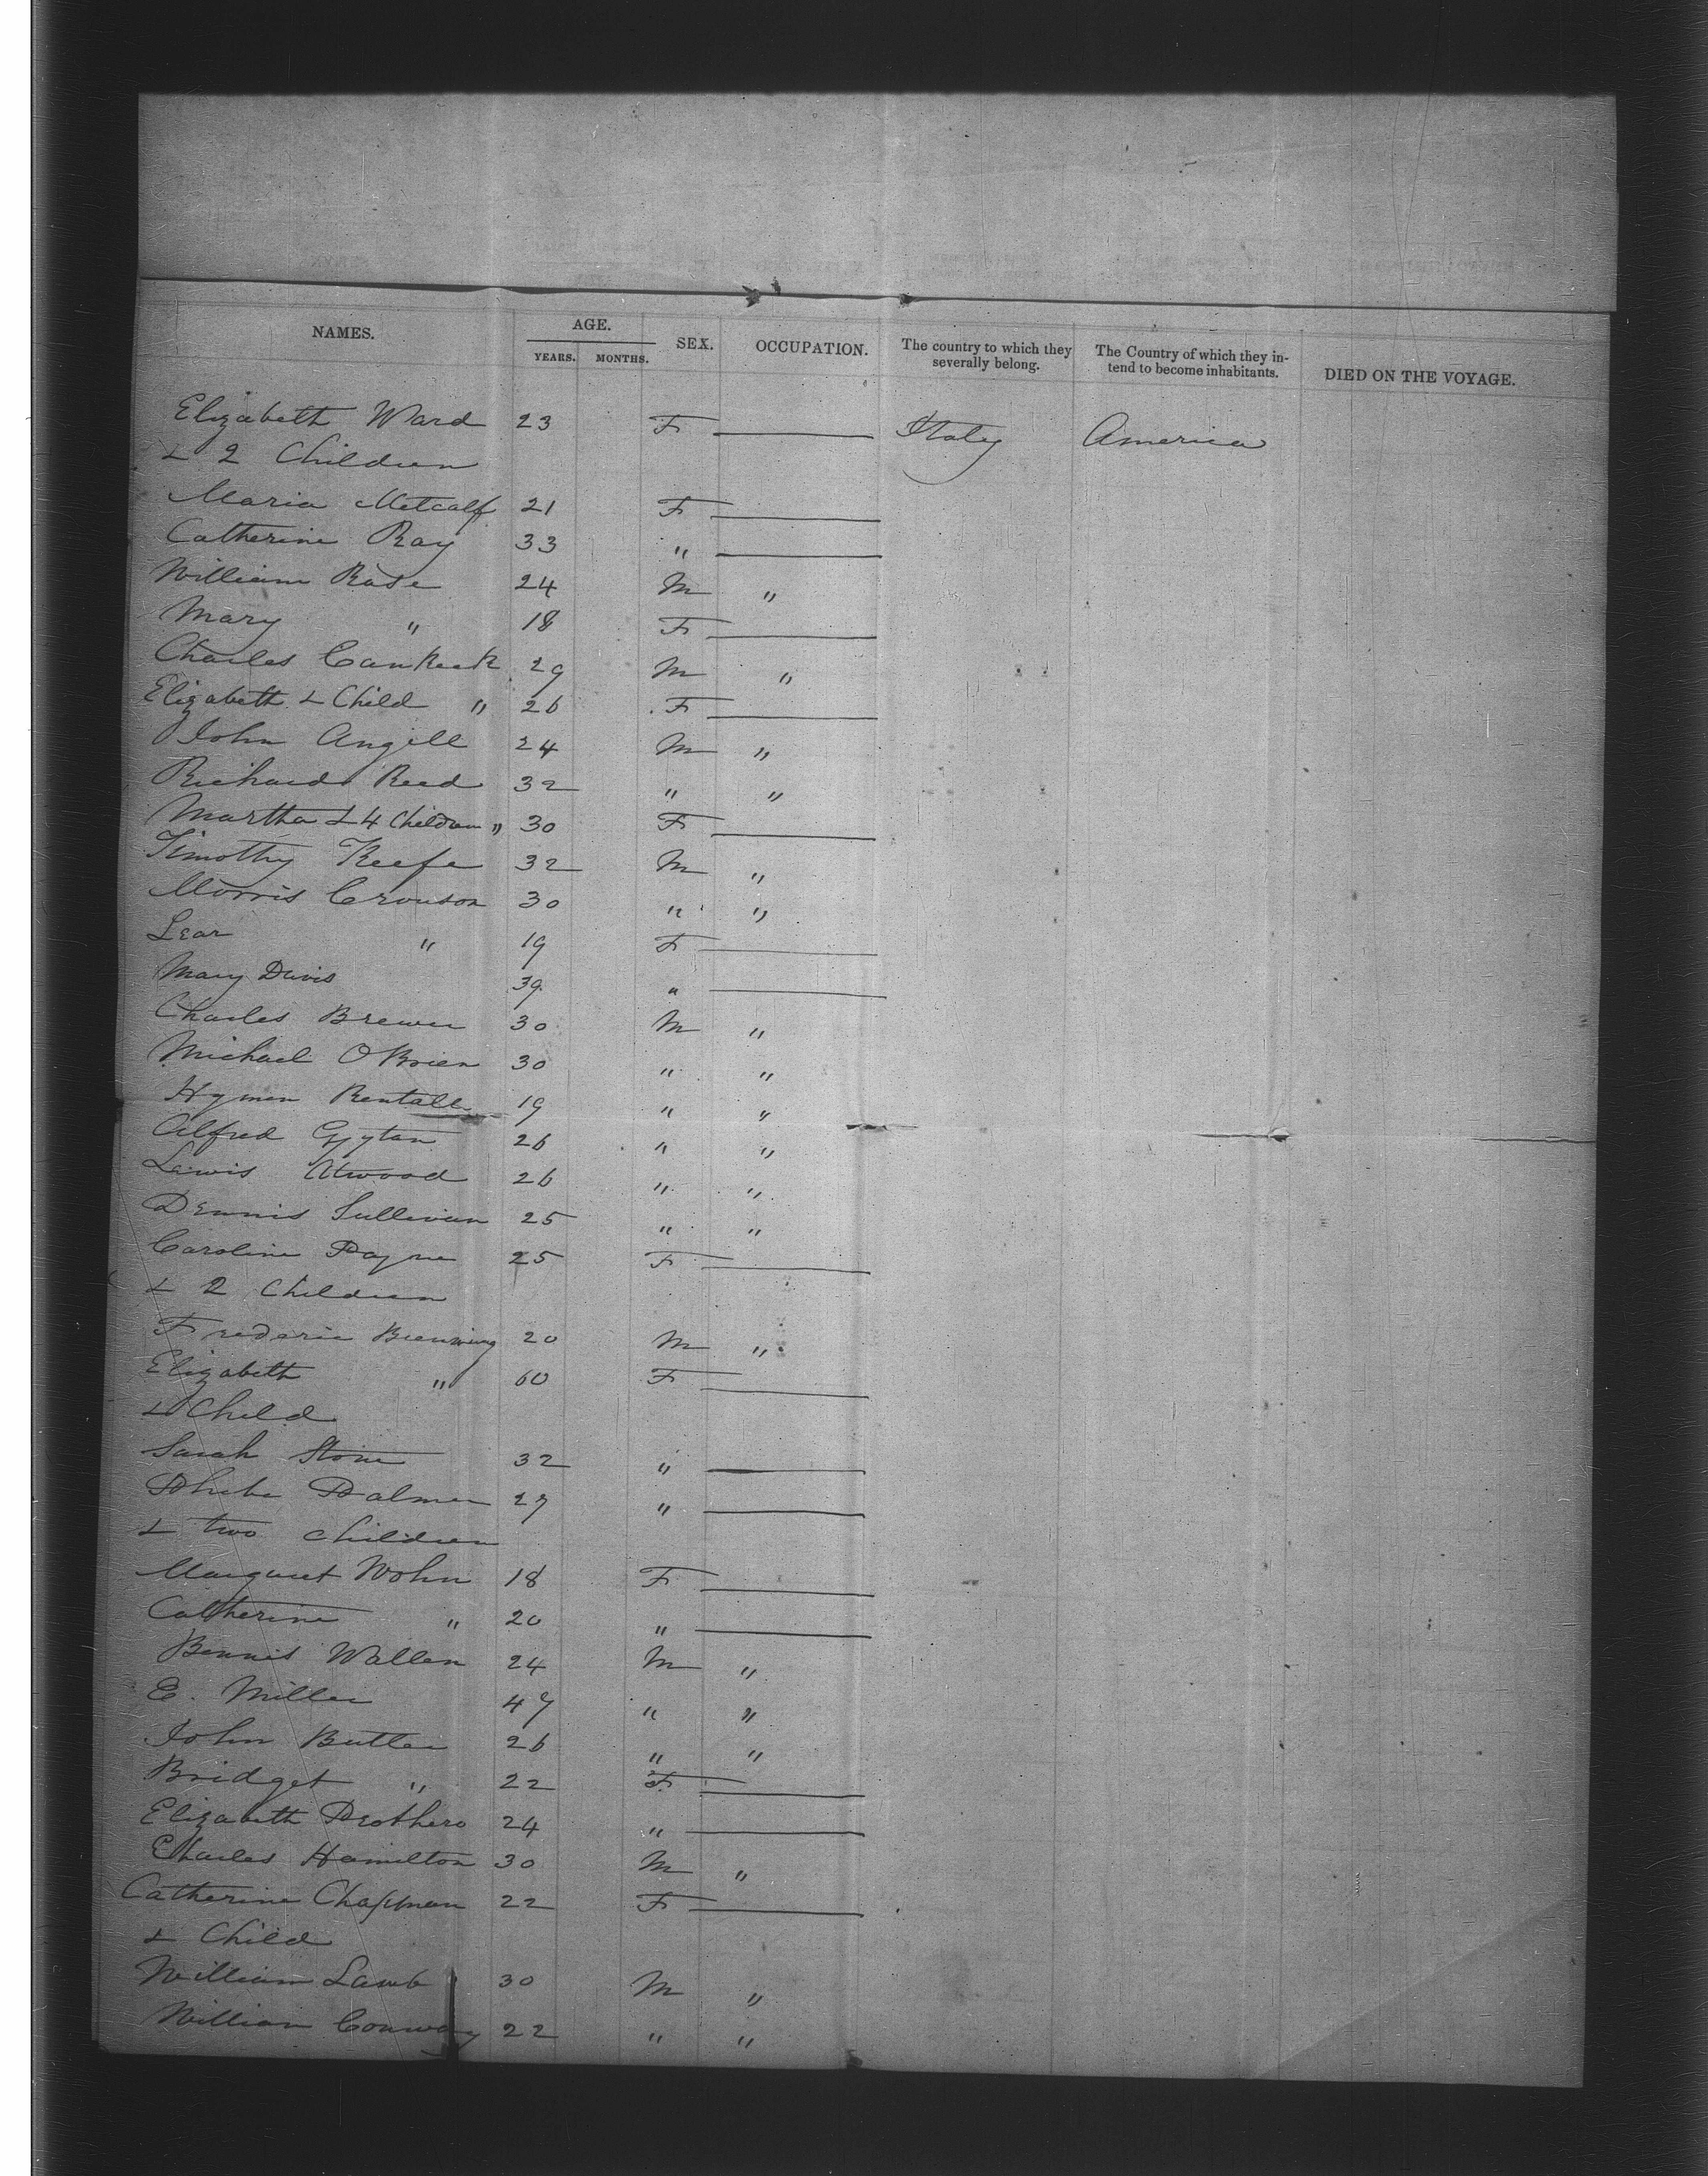 NAMES. AGE. SEX. OCCUPATION. The country to which they severally belong. The Country of which they in-tend to become inhabitants. DIED ON THE VOYAGE.
YEARS. MONTHS.
Elizabeth Ward 23 F — Italy America
& 2 Children
Maria Metcalf 21 F —
Catherine Ray 33 " —
William Rose 24 M "
Mary " 18 F —
Charles 29 M "
Elizabeth & Child " 26 F —
John Angell 24 M "
Richard Reed 32 " "
Martha & 4 Children " 30 F —
Timothy Keefe 32 M "
Morris Crouson 30 " "
Lear " 19 F —
Mary Davis 39 " —
Charles Brewer 30 M "
Michael OBrien 30 " "
Hymen Rentall 19 " "
Alfred 26 " "
Lewis Atwood 26 " "
Dennis Sullivan 25 " "
Caroline Payne 25 F —
& 2 Children
Frederic 20 M "
Elizabeth " 60 F —
& Child
Sarah Stone 32 " —
Phebe Palmer 27 " —
& two children
Margaret Wohn 18 F —
Catherine " 20 " —
Bennis Wallen 24 M "
E. Miller 47 " "
John Butler 26 " "
Bridget " 22 F —
Elizabeth Prothero 24 " —
Charles Hamilton 30 M "
Catherine Chapman 22 F —
& Child
William Lamb 30 M "
William Conway 22 " "